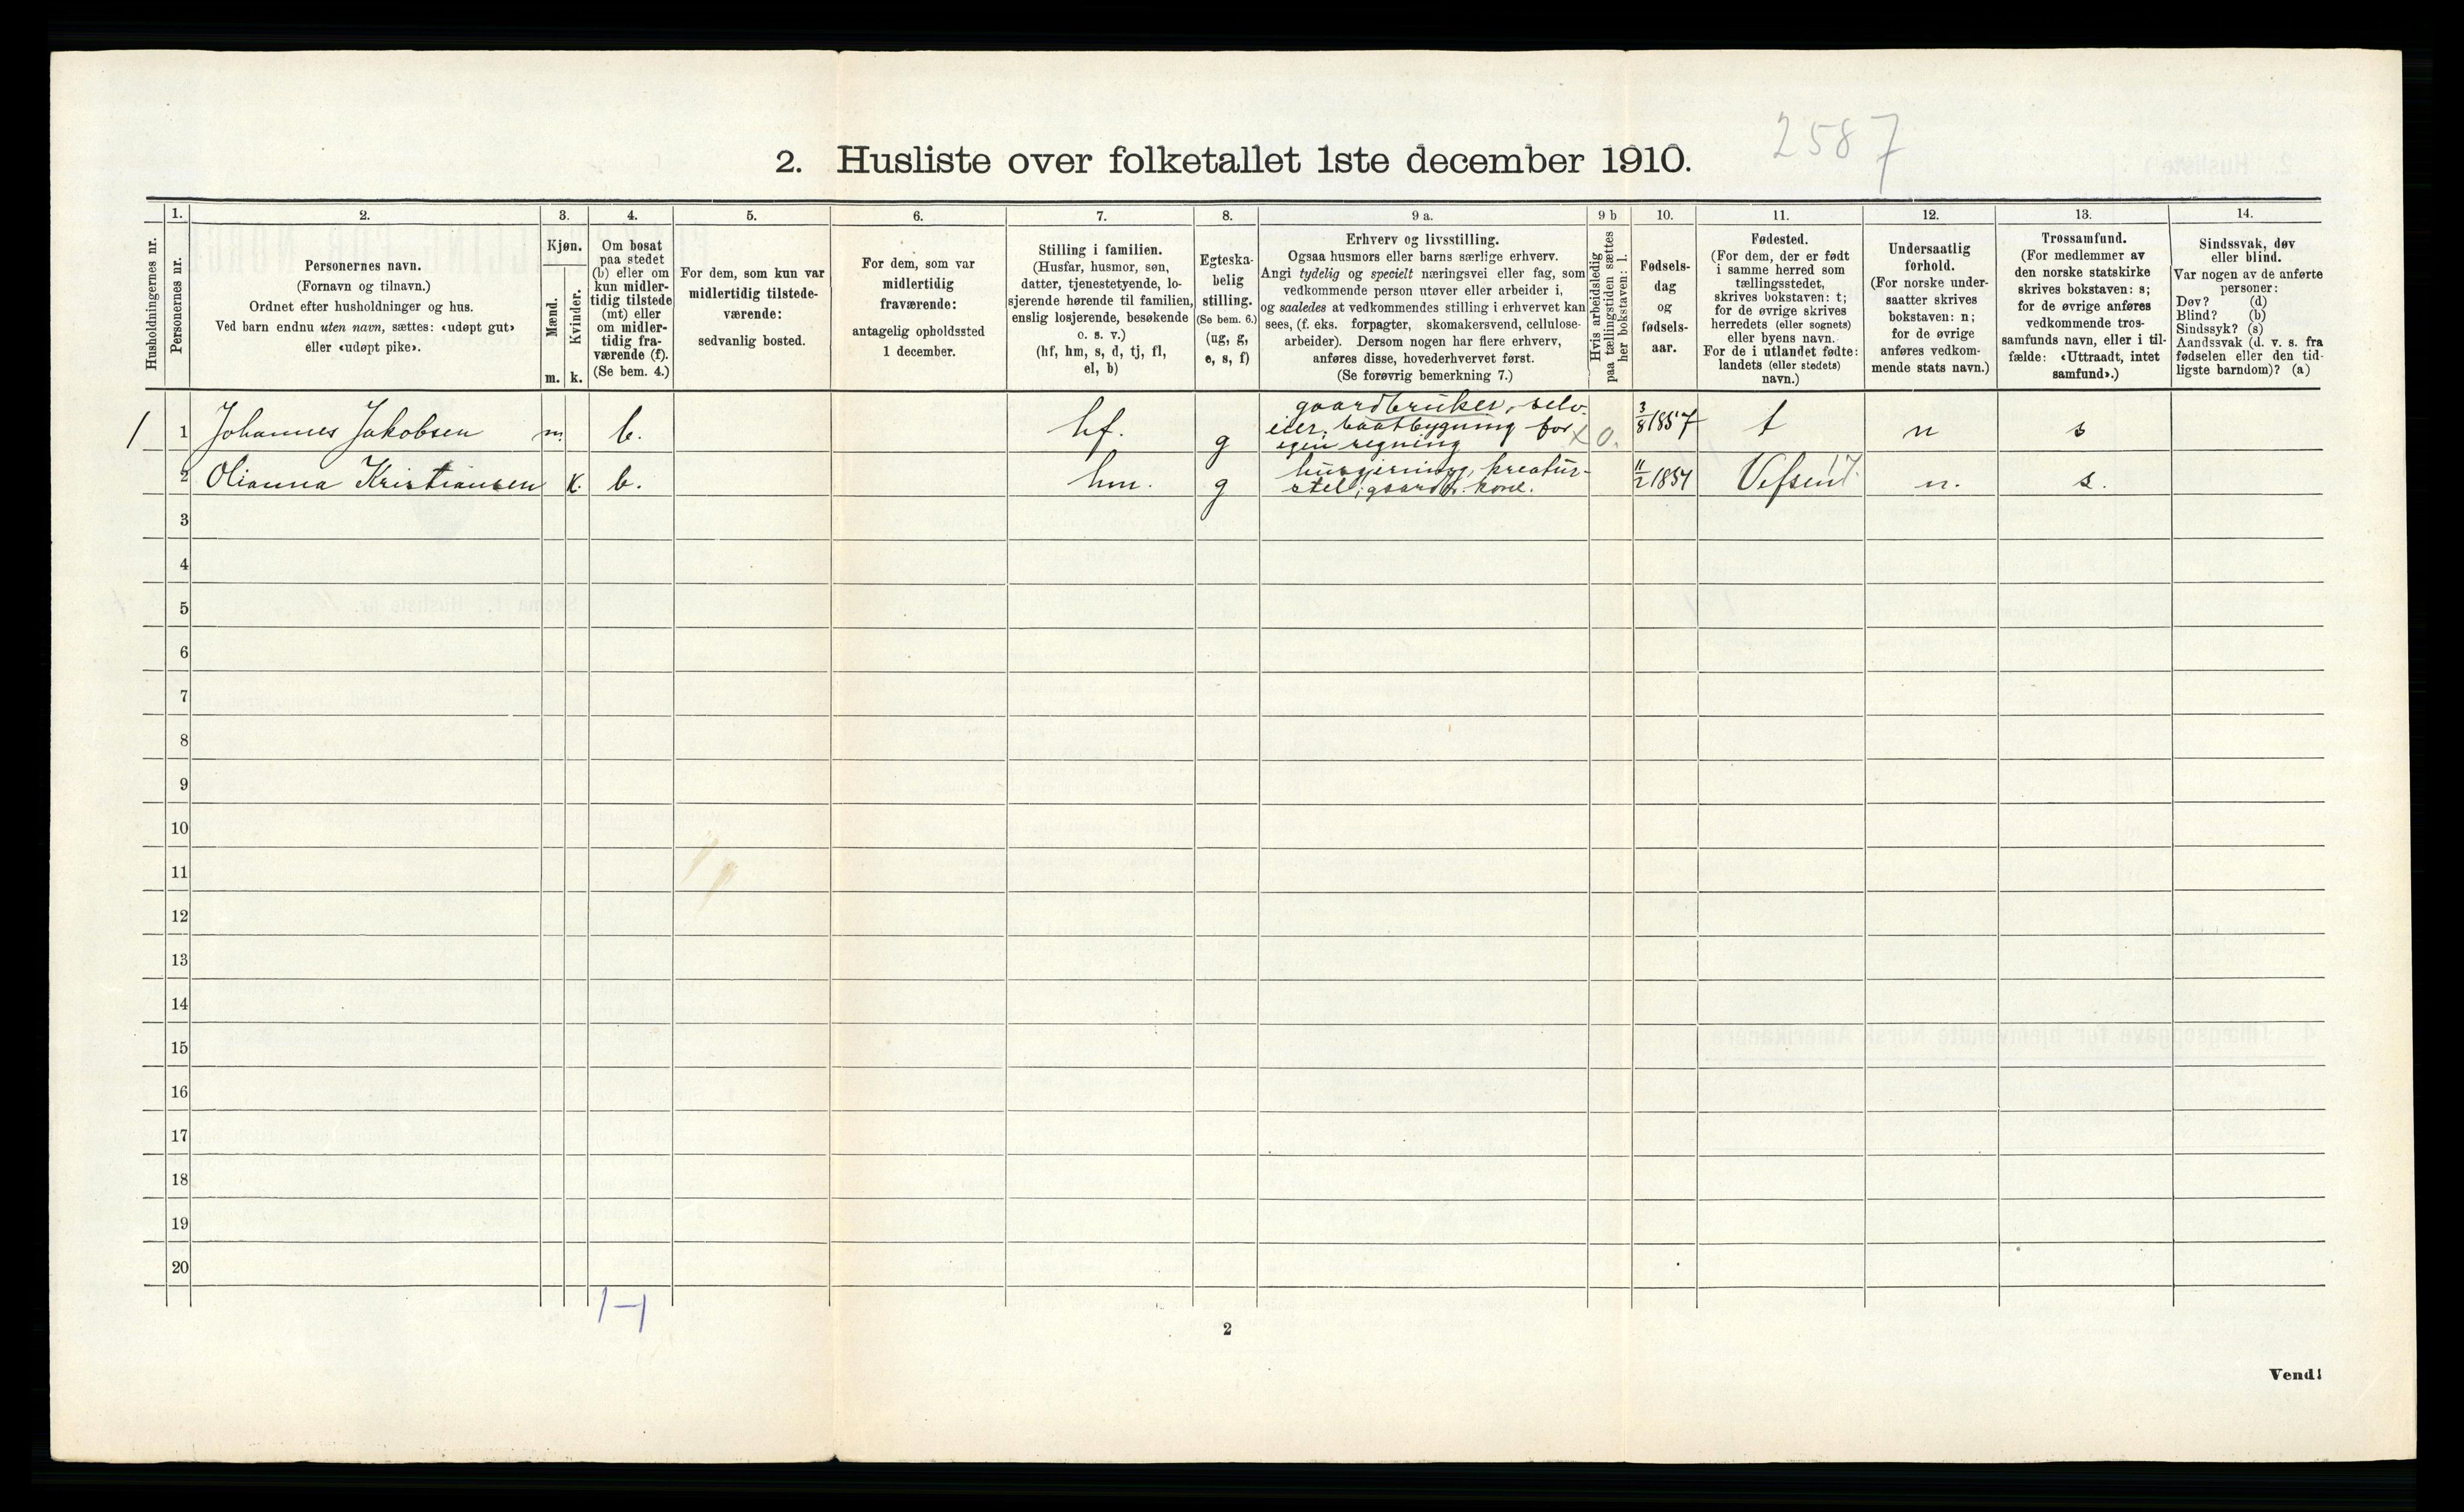 2587
2. Husliste over folketallet 1ste december 1910.
Husholdningernes nr.
1.
Personernes nr.
2.
Personernes navn.
(Fornavn og tilnavn.)
Ordnet efter husholdninger og hus.
Ved barn endnu uten navn, sættes: «udøpt gut»
eller «udøpt pike».
3.
Kjøn.
Mænd.
Kvinder.
m. k.
4.
Om bosat
paa stedet
(b) eller om
kun midler-
tidig tilstede
(mt) eller
om midler-
tidig fra-
værende (f).
(Se bem. 4.)
5.
For dem, som kun var
midlertidig tilstede-
værende:
sedvanlig bosted.
6.
For dem, som var
midlertidig
fraværende:
antagelig opholdssted
1 december.
7.
Stilling i familien.
(Husfar, husmor, søn,
datter, tjenestetyende, lo-
sjerende hørende til familien,
enslig losjerende, besøkende
o. s. v.)
(hf, hm, s, d, tj, fl,
el, b)
8.
Egteska-
belig
stilling.
(Se bem. 6.)
(ug, g,
e, s, f)
9 a.
Erhverv og livsstilling.
Ogsaa husmors eller barns særlige erhverv.
Angi tydelig og specielt næringsvei eller fag, som
vedkommende person utøver eller arbeider i,
og saaledes at vedkommendes stilling i erhvervet kan
sees, (f. eks. forpagter, skomakersvend, cellulose-
arbeider). Dersom nogen har flere erhverv,
anføres disse, hovederhvervet først.
(Se forøvrig bemerkning 7.)
9 b
Hvis arbeidsledig
paa tællingstiden sættes
her bokstaven: l.
10.
Fødsels-
dag
og
fødsels-
aar.
11.
Fødested.
(For dem, der er født
i samme herred som
tællingsstedet,
skrives bokstaven: t;
for de øvrige skrives
herredets (eller sognets)
eller byens navn.
For de i utlandet fødte:
landets (eller stedets)
navn.)
12.
Undersaatlig
forhold.
(For norske under-
saatter skrives
bokstaven: n;
for de øvrige
anføres vedkom-
mende stats navn.)
13.
Trossamfund.
(For medlemmer av
den norske statskirke
skrives bokstaven: s;
for de øvrige anføres
vedkommende tros-
samfunds navn, eller i til-
fælde: «Uttraadt, intet
samfund».)
14.
Sindssvak, døv
eller blind.
Var nogen av de anførte
personer:
Døv? (d)
Blind? (b)
Sindssyk? (s)
Aandssvak (d. v. s. fra
fødselen eller den tid-
ligste barndom)? (a)
1 1 Johannes Jakobsen m. b. hf. g gaardbruker, selv-
eier. baatbygning for
egen regning x 0. 3/8 1857 t n s
2 Olianna Kristiansen k. b. hm. g husgjerning, kreatur-
stel, gaardbr. kone. 11/2 1854 Vefsen 17. n. s.
3
4
5
6
7
8
9
10
11
12
13
14
15
16
17
18
19
20
1-1
2
Vend!